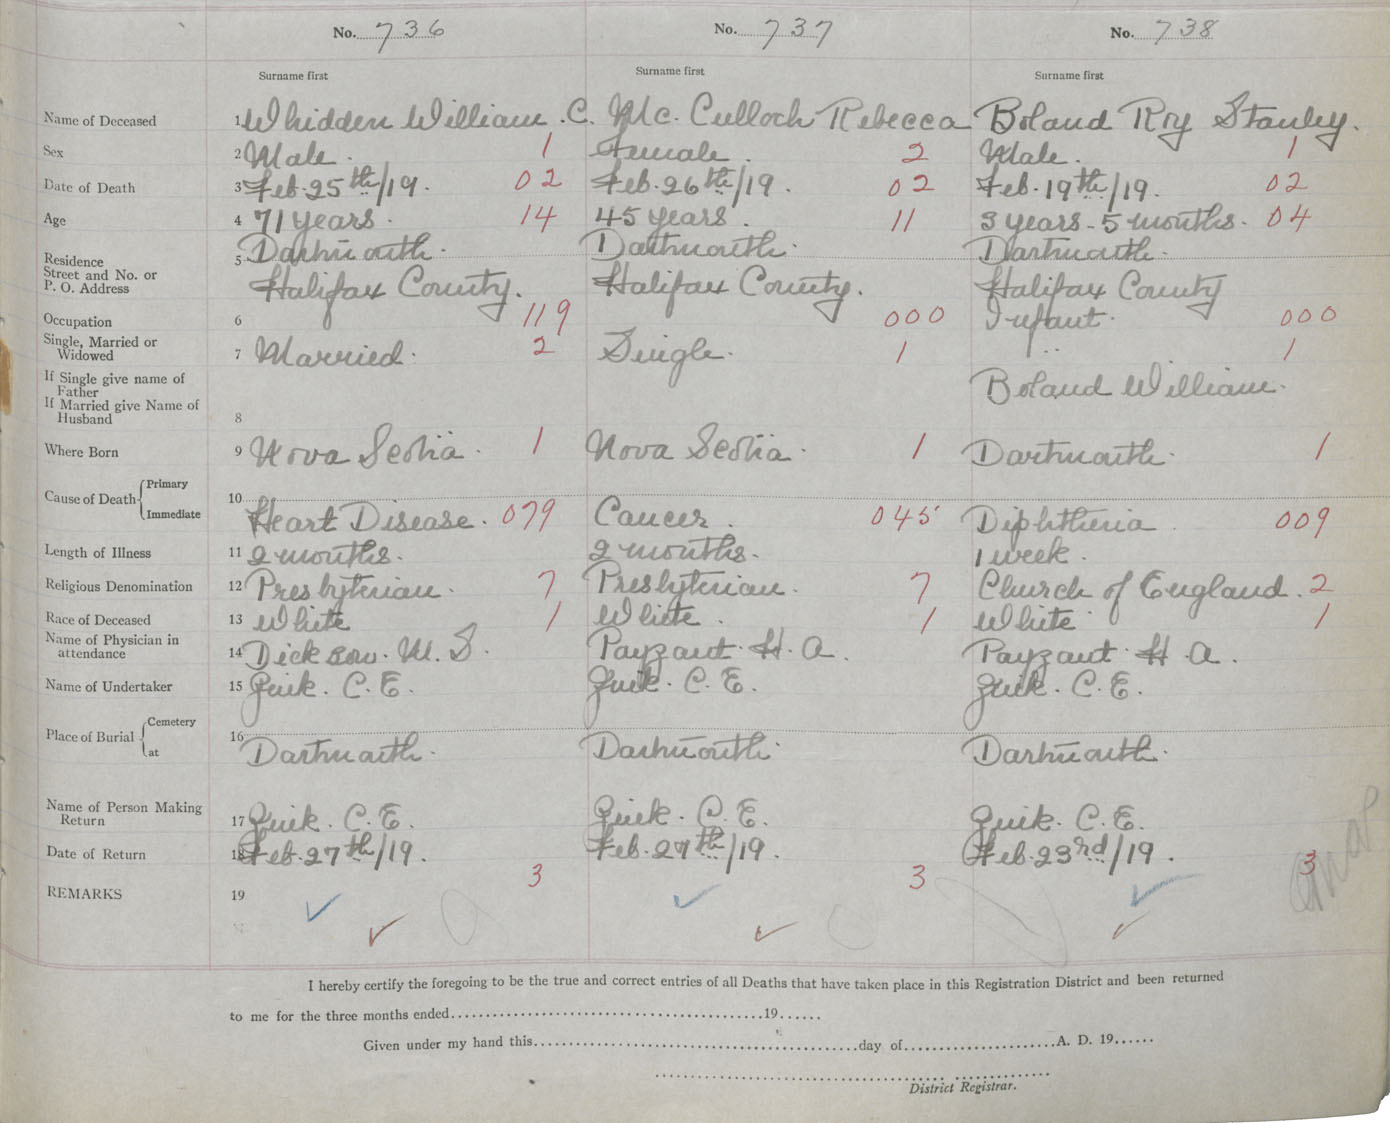 No. 736 No. 737 No. 738
Surname first Surname first Surname first
Name of Deceased 1 Whidden William C. Mc. Culloch Rebecca Boland Roy Stanley.
Sex 2 Male. 1 Female. 2 Male. 1
Date of Death 3 Feb. 25th/19. 02 Feb. 26th/19. 02 Feb. 19th/19. 02
Age 4 71 years. 14 45 years. 11 3 years - 5 months. 04
Residence 5 Dartmouth. Dartmouth. Dartmouth.
Street and No. or
P. O. Address Halifax County. Halifax County. Halifax County
Occupation 6 119 000 Infant. 000
Single, Married or
Widowed 7 Married. 2 Single. 1 1
If Single give name of
Father Boland William.
If Married give Name of
Husband 8
Where Born 9 Nova Scotia. 1 Nova Scotia. 1 Dartmouth. 1
Cause of Death Primary 10
Immediate Heart Disease. 079 Cancer. 045 Diphtheria. 009
Length of Illness 11 2 months. 2 months. 1 week.
Religious Denomination 12 Presbyterian. 7 Presbyterian. 7 Church of England. 2
Race of Deceased 13 White 1 White. 1 White 1
Name of Physician in
attendance 14 Dickson. M. S. Payzant. H. A. Payzant. H. A.
Name of Undertaker 15 Zink. C. E. Zink. C. E. Zink. C. E.
Place of Burial Cemetery 16
at Dartmouth. Dartmouth. Dartmouth.
Name of Person Making
Return 17 Zink. C. E. Zink. C. E. Zink. C. E.
Date of Return 18 Feb. 27th/19. Feb. 27th/19. Feb. 23rd/19.
3 3 3
REMARKS 19
I hereby certify the foregoing to be the true and correct entries of all Deaths that have taken place in this Registration District and been returned
to me for the three months ended 19
Given under my hand this day of A. D. 19
District Registrar.